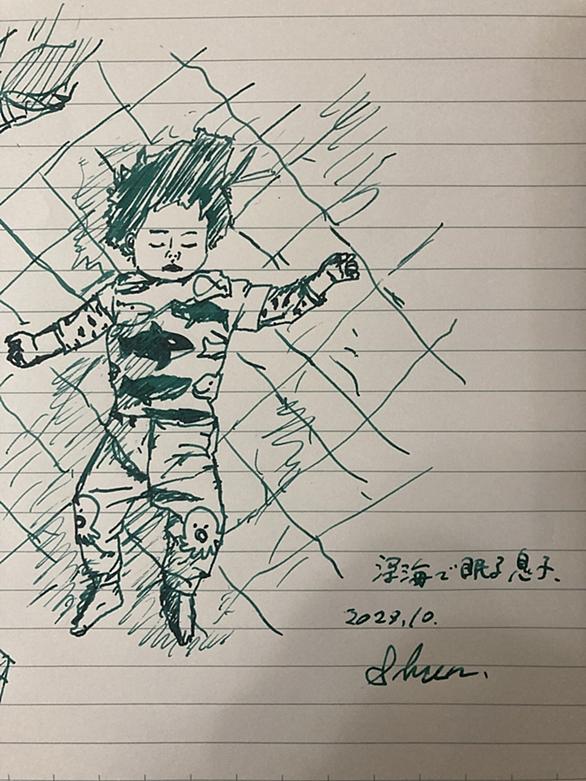 深海で眠る息子、
2023.10.
Shun.